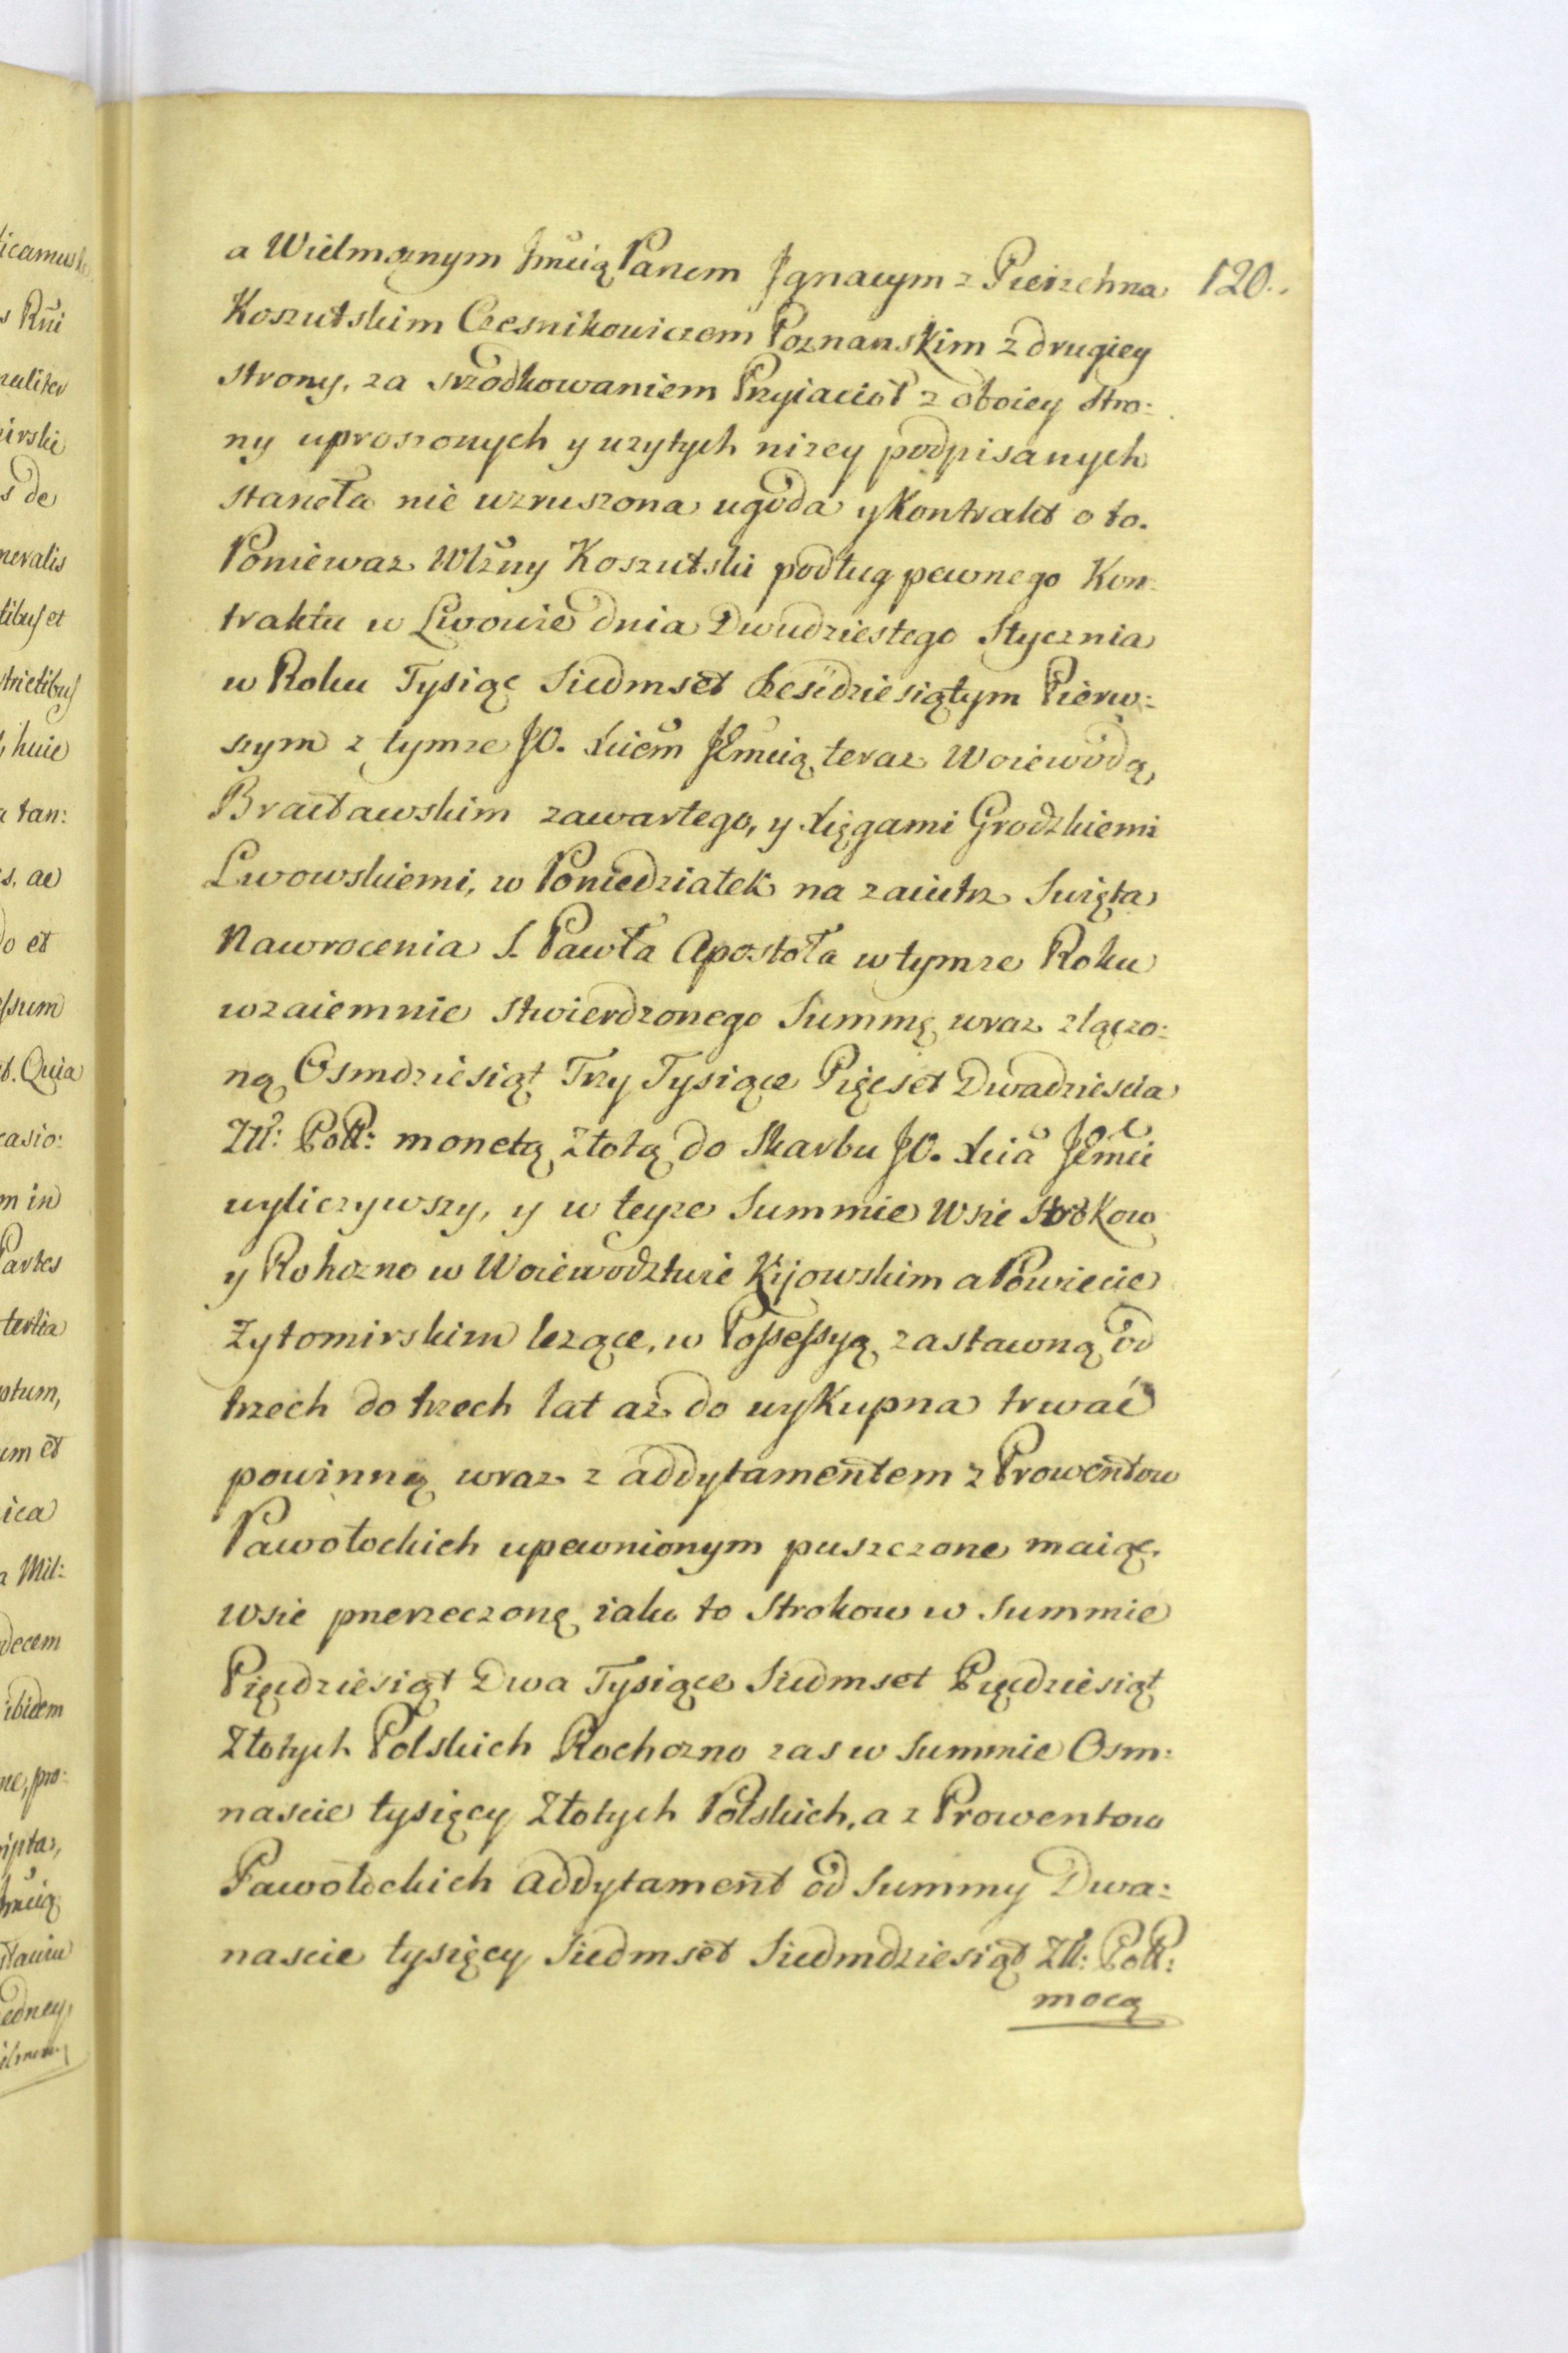 a Wielmoznym Jmcią Panem Jgnacym z Pierzchna
120.
Koszutskim Czesnikowiczem Poznanskim z drugiey
strony, za srzodkowaniem Przyiacioł z oboiey Stro:
ny uproszonych y uzytych nizey podpisanych
staneła nie wzruszona ugoda y Kontrakt o to.
Poniewaz Wlzny Koszutski podług pewnego Kon:
traktu w Lwowie dnia Dwudziestego Stycznia
w Roku Tysiąc Siedmset Szesćdziesiątym Pierw:
szym z tymze JO. Xciem Jemcią teraz Woiewodą,
Bracławskim zawartego, y Xięgami Grodzkiemi
Lwowskiemi, w Poniedziałek na zaiutrz Swięta
Nawrocenia S. Pawła Apostoła w tymze Roku
wzaiemnie stwierdzonego Summę wraz złączo:
ną Osmdziesiąt Trzy Tysiące Pięcset Dwadziescia
Złł: Poll: monetą złotą do Skarbu JO. Xcia Jemci
wyliczywszy, y w teyze Summie Wsie Strokow
y Rohozno w Woiewodztwie Kijowskim a Powiecie
Zytomirskim lezące, w Possessyą zastawną od
trzech do trzech lat aż do wykupna trwać
powinną wraz z addytamentem z Prowentow
Pawołockich upewnionym puszczone maiąc.
wsie pnerzeczonę iako to Strokow w Summie
Pięcdziesiąt Dwa Tysiące Siedmset Pięcdziesiąt
Złotych Polskich Rochozno zas w Summie Osm:
nascie tysięcy Złotych Polskich, a z Prowentow
Pawołockich addytament od Summy Dwa:
nascie tysięcy Siedmset Siedmdziesiąt Złł: Poll:
mocą